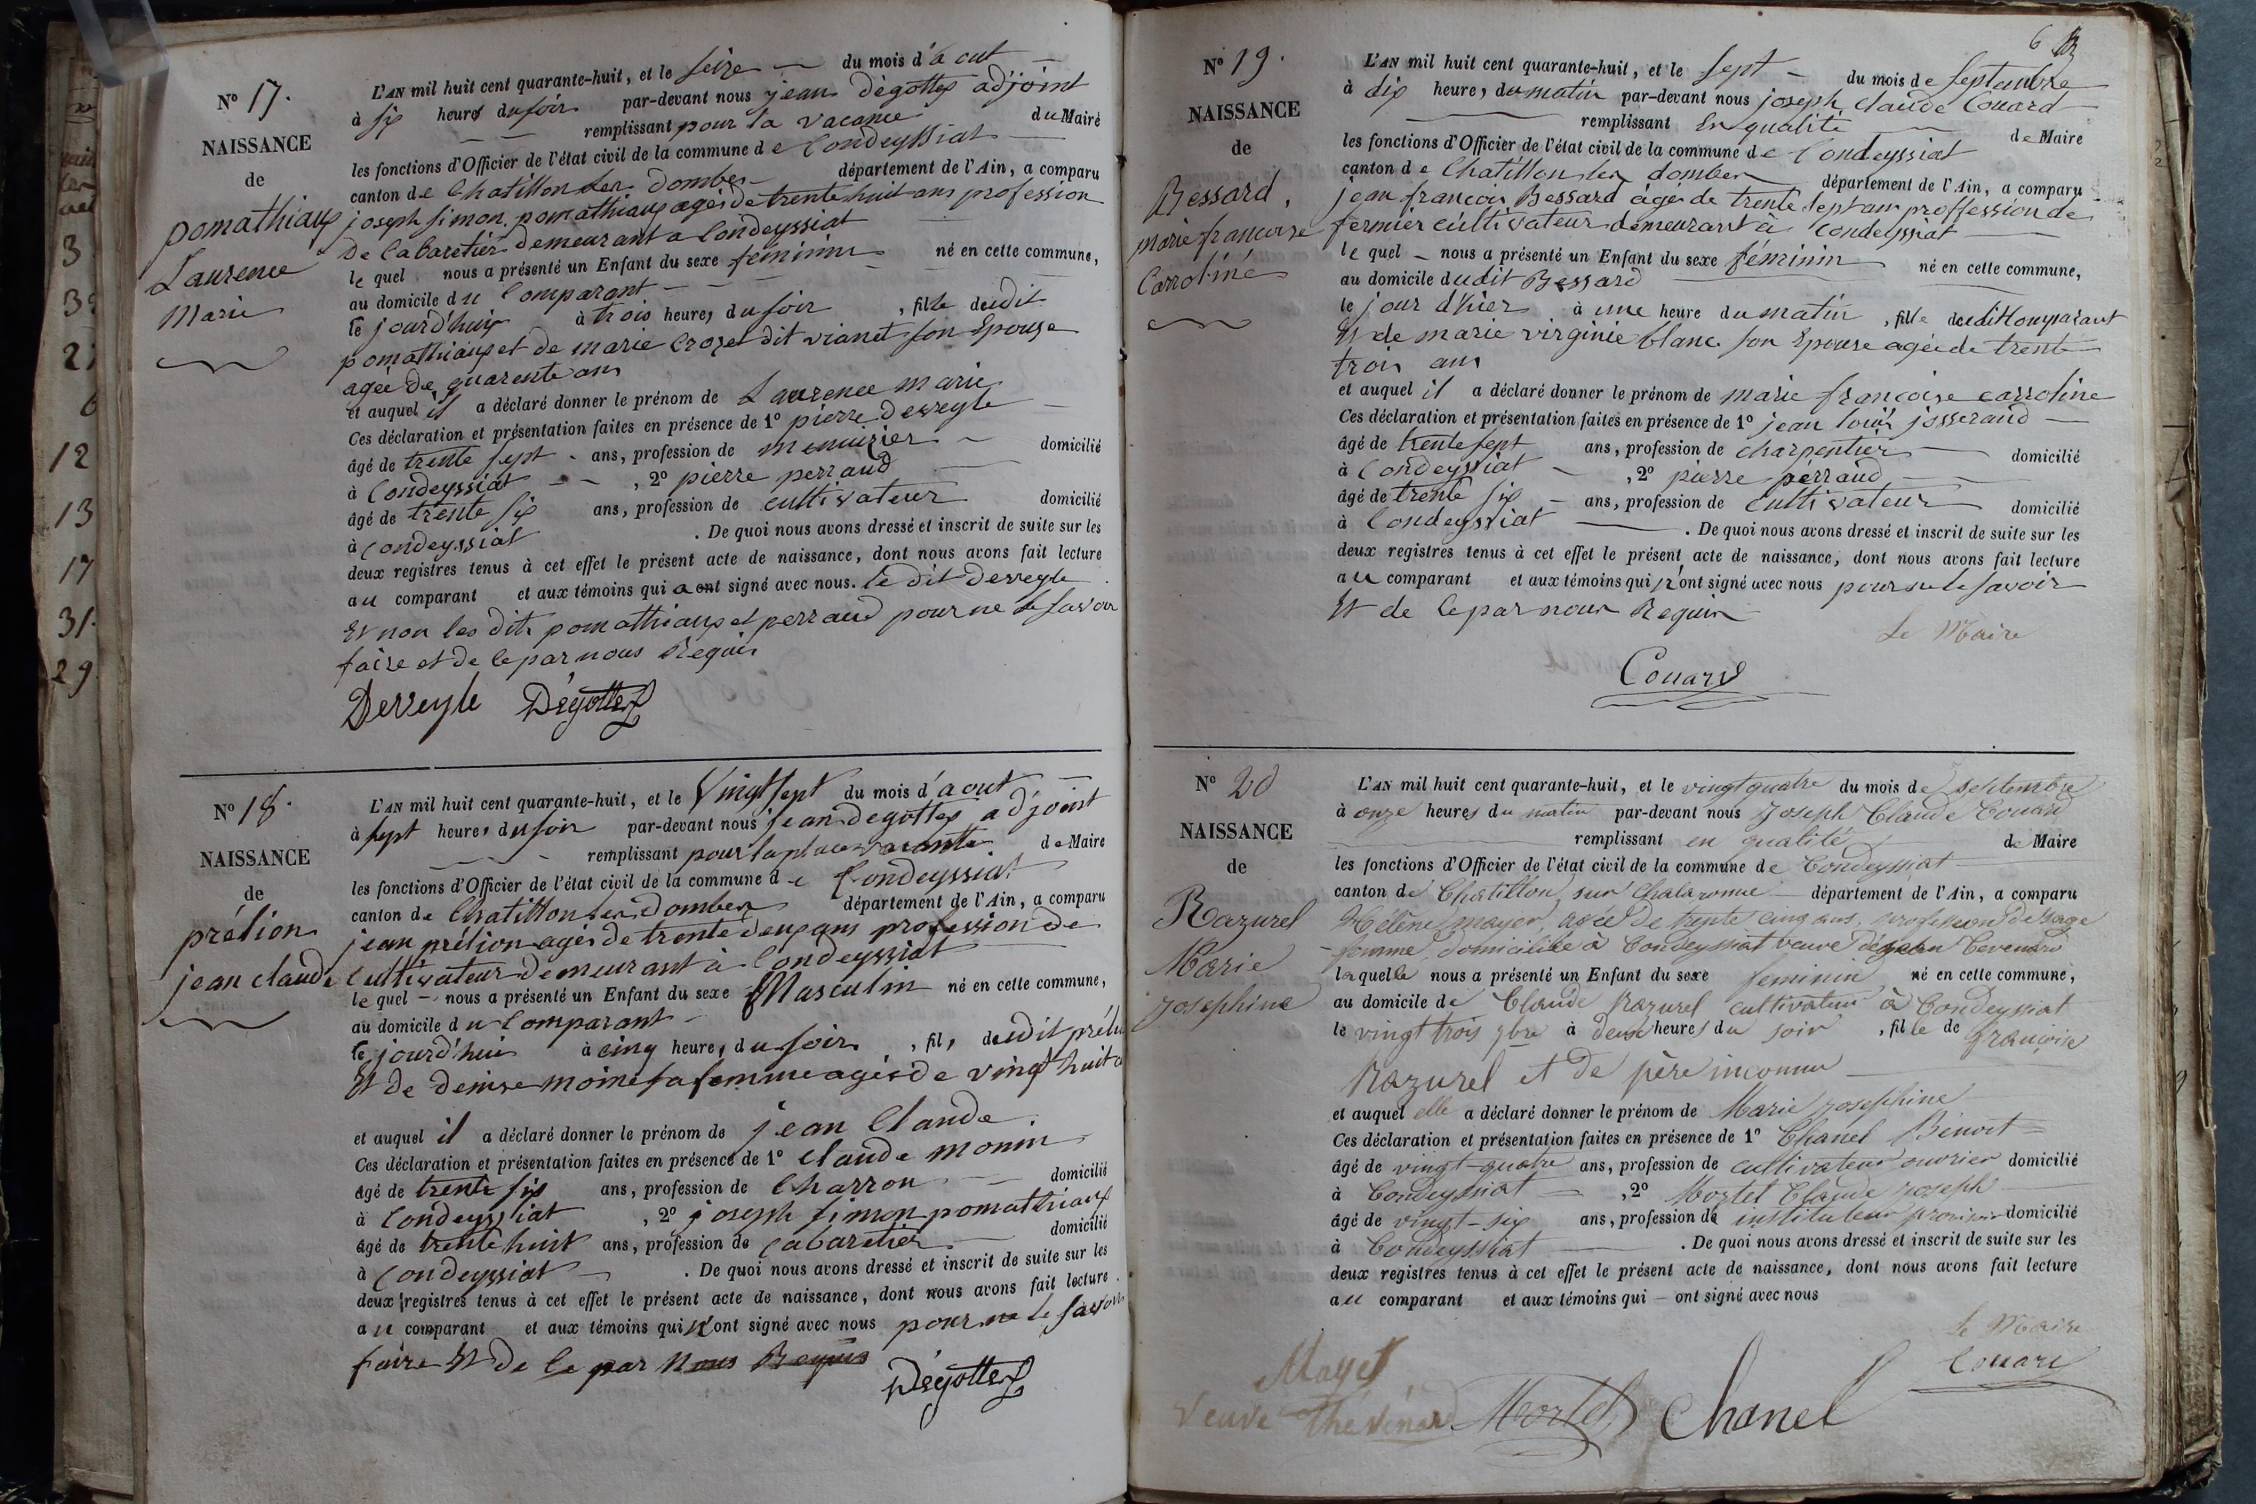 N° 17.
NAISSANCE
de
pomathiaux
Laurence
Marie
L'AN mil huit cent quarante-huit, et le seize du mois d'aout
à six heures du soir par-devant nous jean dégottex adjoint
remplissant pour la vacance du Maire
les fonctions d'Officier de l'état civil de la commune de Condeyssiat
canton de Chatillon les Dombes département de l'Ain, a comparu
joseph simon pomathiaux agés de trente huit ans profession
De Cabaretier Demeurant a Condeyssiat
le quel nous a présenté un Enfant du sexe féminin né en cette commune,
au domicile du Comparant
le jourd'huix à trois heures du soir, fille dudit
pomathiaux et de marie Crozet dit vianet son Epouse
agée De quarente ans
et auquel il a déclaré donner le prénom de Laurence marie
Ces déclaration et présentation faites en présence de 1° pierre Deveyle
âgé de trente sept ans, profession de menuizier domicilié
à Condeyssiat, 2° pierre perraud
âgé de trente six ans, profession de cultivateur domicilié
à Condeyssiat. De quoi nous avons dressé et inscrit de suite sur les
deux registres tenus à cet effet le présent acte de naissance, dont nous avons fait lecture
au comparant et aux témoins qui a ont signé avec nous. le dit Deveyle
Et non les dits pomathiaux et perraud pour ne le savoir
faire et de ce par nous Requis
Deveyle Dégottex
N° 18.
NAISSANCE
de
prélion
jean claude
L'AN mil huit cent quarante-huit, et le Vingt sept du mois d'aout
à sept heures du soir par-devant nous jean degottex adjoint
remplissant pour la place vacante de Maire
les fonctions d'Officier de l'état civil de la commune de Condeyssiat
canton de Chatillon les Dombes département de l'Ain, a comparu
jean prélion agés de trente deux ans profession de
Cultivateur Demeurant à Condeyssiat
le quel nous a présenté un Enfant du sexe Masculin né en cette commune,
au domicile du Comparant
le jourd'hui à cinq heures du soir, fils dudit prélion
Et de denise moine sa femme agés de vingt huit
et auquel il a déclaré donner le prénom de jean Claude
Ces déclaration et présentation faites en présence de 1° claude monin
âgé de trente six ans, profession de Charron domicilié
à Condeyssiat, 2° joseph simon pomathiaux
âgé de trente huit ans, profession de Cabaretier domicilié
à Condeyssiat. De quoi nous avons dressé et inscrit de suite sur les
deux registres tenus à cet effet le présent acte de naissance, dont nous avons fait lecture
au comparant et aux témoins qui n'ont signé avec nous pour ne le savoir
faire Et de Ce par Nous Requis
Dégottex
6
N° 19.
NAISSANCE
de
Bessard,
marie francoise
Carroline
L'AN mil huit cent quarante-huit, et le sept du mois de septembre
à dix heures du matin par-devant nous joseph claude Couard
remplissant En qualité de Maire
les fonctions d'Officier de l'état civil de la commune de Condeyssiat
canton de Chatillon les dombes département de l'Ain, a comparu
jean francois Bessard âgé de trente sept ans proffession de
fermier cultivateur demeurant à Condeyssiat
le quel nous a présenté un Enfant du sexe féminin né en cette commune,
au domicile dudit Bessard
le jour d'hier à une heure du matin, fille dudit Comparant
Et de marie virginie blanc son Epouse agée de trente
trois ans
et auquel il a déclaré donner le prénom de marie françoise carroline
Ces déclaration et présentation faites en présence de 1° jean louis josserand
âgé de trente sept ans, profession de charpentier domicilié
à Condeyssiat, 2° pierre perraud
âgé de trente six ans, profession de cultivateur domicilié
à Condeyssiat. De quoi nous avons dressé et inscrit de suite sur les
deux registres tenus à cet effet le présent acte de naissance, dont nous avons fait lecture
au comparant et aux témoins qui n'ont signé avec nous pour ne le savoir
Et de ce par nous Requis
Le Maire
Couard
N° 20
NAISSANCE
de
Razurel
Marie
Josephine
L'AN mil huit cent quarante-huit, et le vingt quatre du mois de septembre
à onze heures du matin par-devant nous Joseph Claude Couard
remplissant en qualité de Maire
les fonctions d'Officier de l'état civil de la commune de Condeyssiat
canton de Chatillon sur Chalaronne département de l'Ain, a comparu
Hélène mayer, agée de trente cinq ans, profession de sage
femme, domiciliée à Condeyssiat veuve
laquelle nous a présenté un Enfant du sexe feminin né en cette commune,
au domicile de Claude Razurel cultivateur à Condeyssiat
le vingt trois 7bre à deux heures du soir, fille de Françoise
Razurel et de père inconnu
et auquel elle a déclaré donner le prénom de Marie Josephine
Ces déclaration et présentation faites en présence de 1° Chanel Benoit
âgé de vingt-quatre ans, profession de cultivateur ouvrier domicilié
à Condeyssiat, 2° Mortel Claude Joseph
âgé de vingt-six ans, profession de instituteur domicilié
à Condeyssiat. De quoi nous avons dressé et inscrit de suite sur les
deux registres tenus à cet effet le présent acte de naissance, dont nous avons fait lecture
au comparant et aux témoins qui ont signé avec nous
Le Maire
Couard
Mayet
Veuve Thévenard Mortel Chanel
3
12
13
17
31.
29